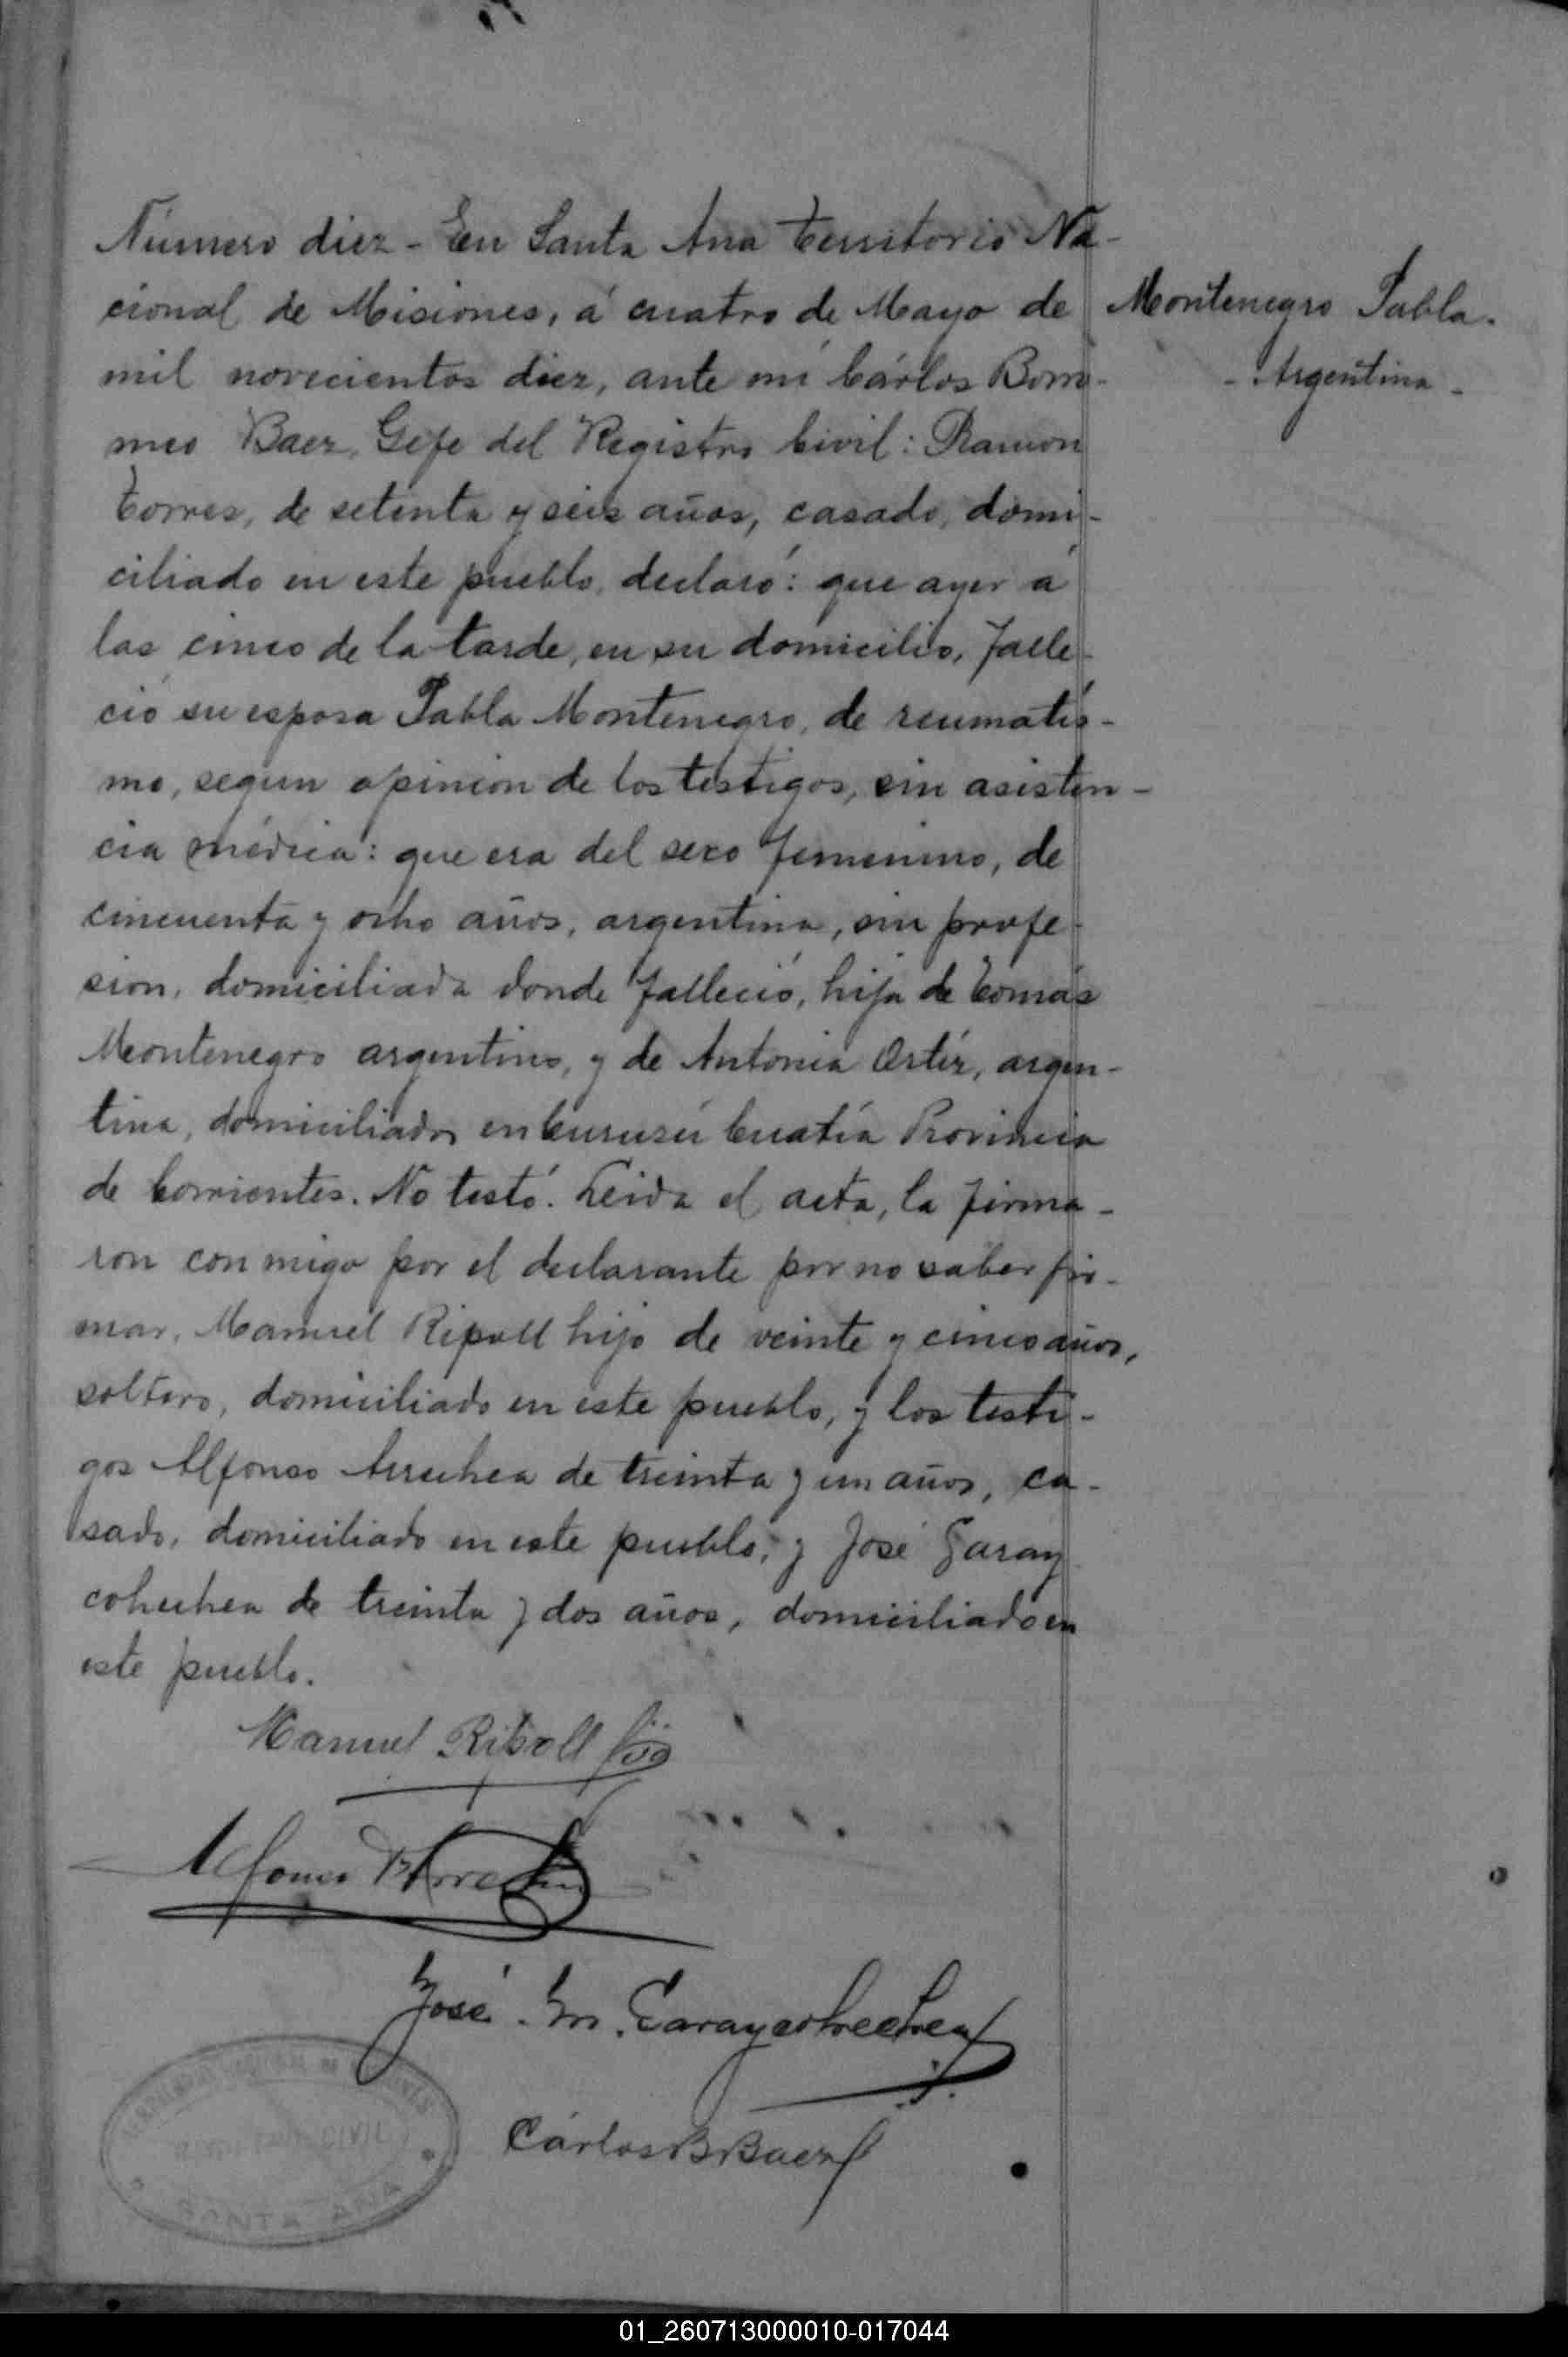 Número diez - En Santa Ana Territorio Na-
cional de Misiones, á cuatro de Mayo de
mil novecientos diez, ante mi Cárlos Borro-
meo Baez, Gefe del Registro Civil: Ramon
Torres, de setenta y seis años, casado, domi-
ciliado en este pueblo, declaró: que ayer á
las cinco de la tarde, en su domicilio, falle-
ció su esposa Pabla Montenegro, de reumatis-
mo, segun opinion de los testigos, sin asisten-
cia médica: que era del sexo femenino, de
cincuenta y ocho años, argentina, sin profe-
sion, domiciliada donde falleció, hija de Tomás
Montenegro argentino, y de Antonia Ortíz, argen-
tina, domiciliados en Curuzú Cuatía Provincia
de Corrientes. No testó. Leida el acta, la firma-
ron con migo por el declarante por no saber fir-
mar, Manuel Ripoll hijo de veinte y cinco años,
soltero, domiciliado en este pueblo, y los testi-
gos Alfonso Arrechea de treinta y un años, ca-
sado, domiciliado en este pueblo, y José Garay
cohechea de treinta y dos años, domiciliado en
este pueblo.
Montenegro Pabla.
- Argentina -
Manuel Ripoll hijo
Alfonso Arrechea
José M. Garaycohechea
REGISTRO CIVIL
SANTA ANA
Cárlos B Baez
01_260713000010-017044